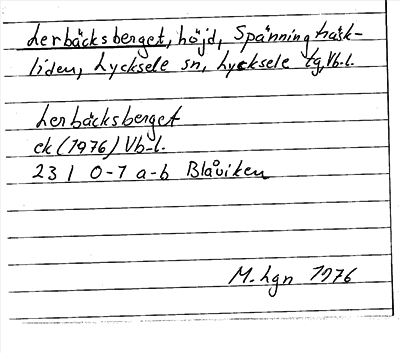 Lerbäcksberget, höjd, Spänningträsk-
liden, Lycksele sn, Lycksele tg, Vb-l.
Lerbäcksberget
ek (1976) Vb-l.
23 I 0-1 a-b Blåviken
M. Lgn 1976